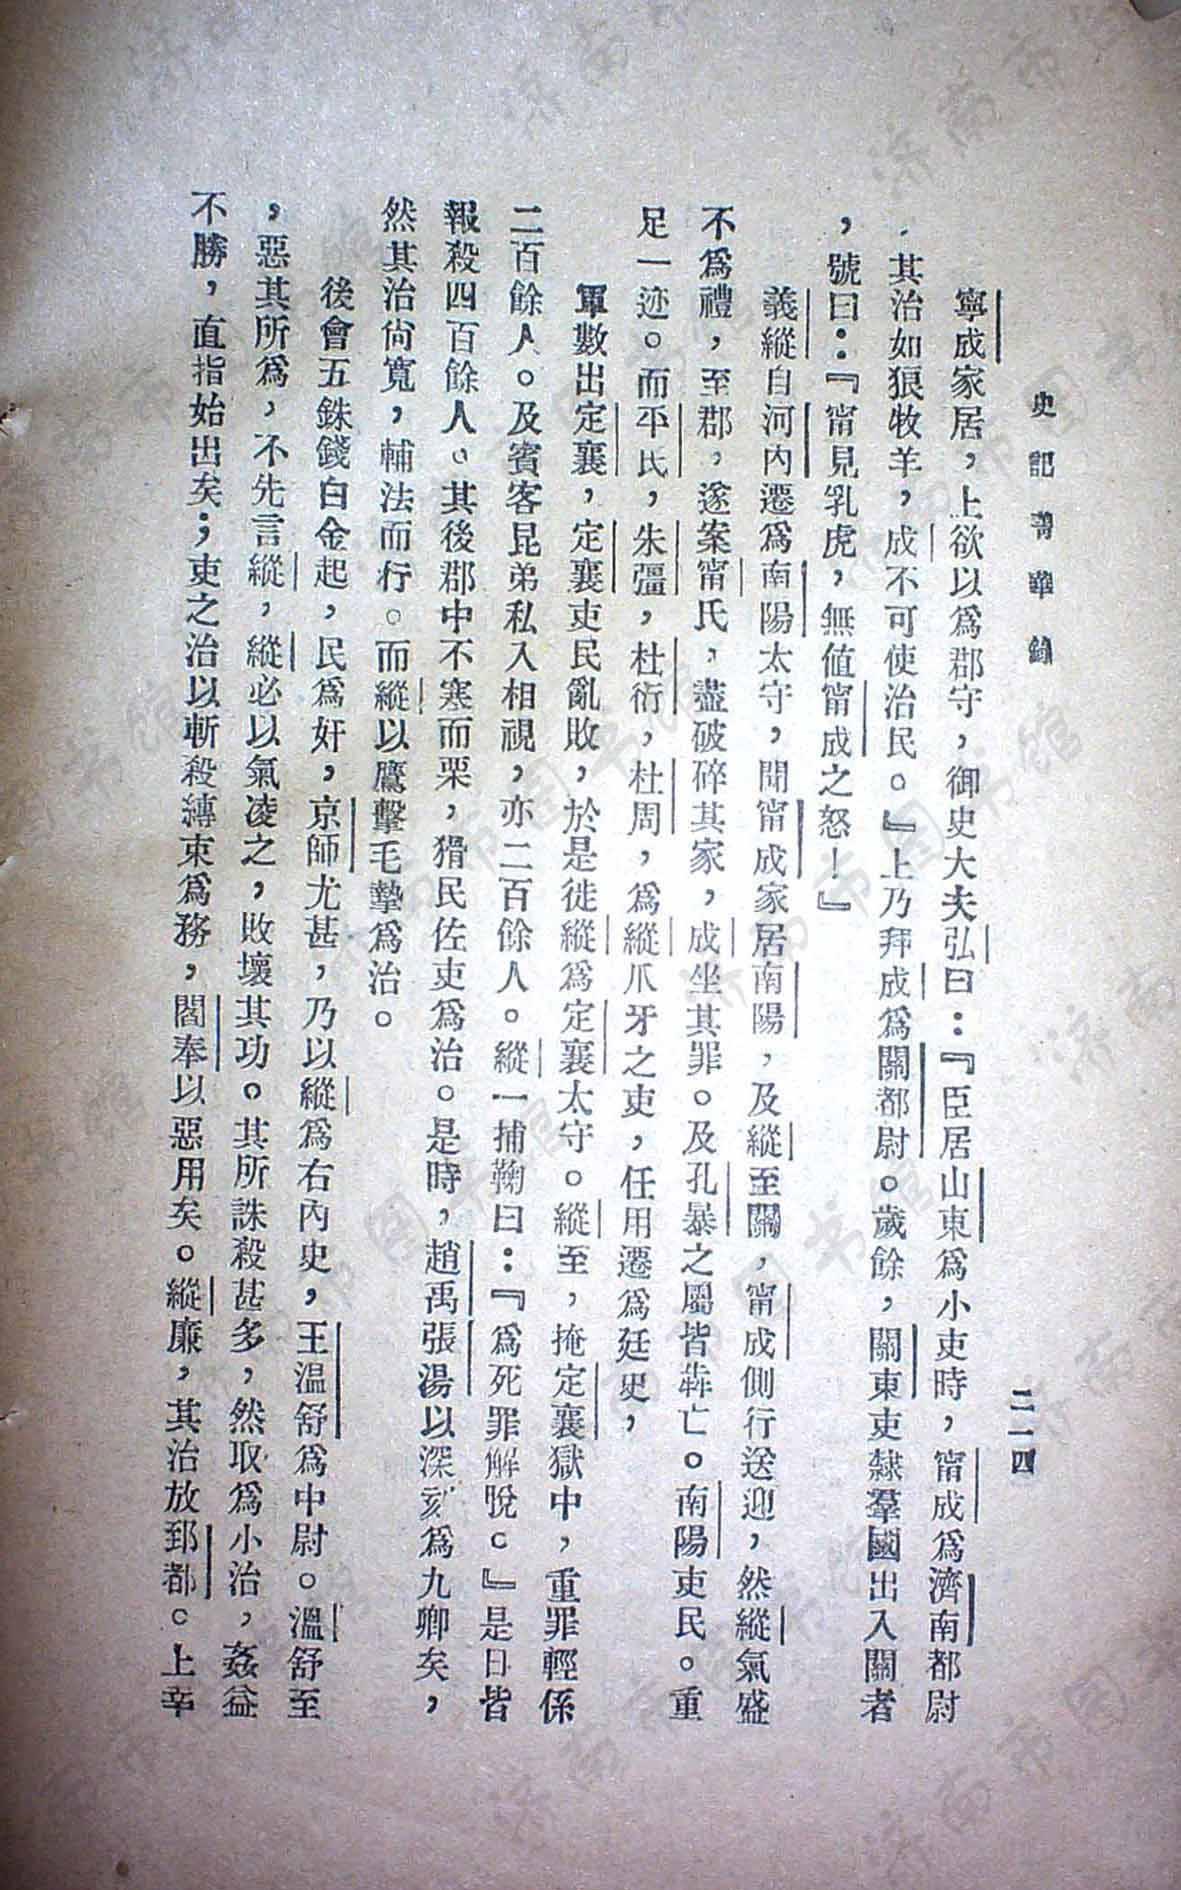 史記菁華錄
二一四
寧成家居，上欲以爲郡守，御史大夫弘曰：『臣居山東爲小吏時，甯成爲濟南都尉
，其治如狼牧羊，成不可使治民。』上乃拜成爲關都尉。歲餘，關東吏隸羣國出入關者
，號曰：『甯見乳虎，無値甯成之怒！』
義縱自河內遷爲南陽太守，聞甯成家居南陽，及縱至關，甯成側行送迎，然縱氣盛
不爲禮，至郡，遂案甯氏，盡破碎其家，成坐其罪。及孔暴之屬皆犇亡。南陽吏民。重
足一迹。而平氏，朱彊，杜衍，杜周，爲縱爪牙之吏，任用遷爲廷史，
軍數出定襄，定襄吏民亂敗，於是徙縱爲定襄太守。縱至，掩定襄獄中，重罪輕係
二百餘人。及賓客昆弟私入相視，亦二百餘人。縱一捕鞠曰：『爲死罪解脫。』是日皆
報殺四百餘人。其後郡中不寒而栗，猾民佐吏爲治。是時，趙禹張湯以深刻爲九卿矣，
然其治尙寬，輔法而行。而縱以鷹擊毛摯爲治。
後會五銖錢白金起，民爲奸，京師尤甚，乃以縱爲右內史，王溫舒爲中尉。溫舒至
，惡其所爲，不先言縱，縱必以氣凌之，敗壞其功。其所誅殺甚多，然取爲小治，姦益
不勝，直指始出矣；吏之治以斬殺縛束爲務，閻奉以惡用矣。縱廉，其治放郅都。上幸
济南市图书馆